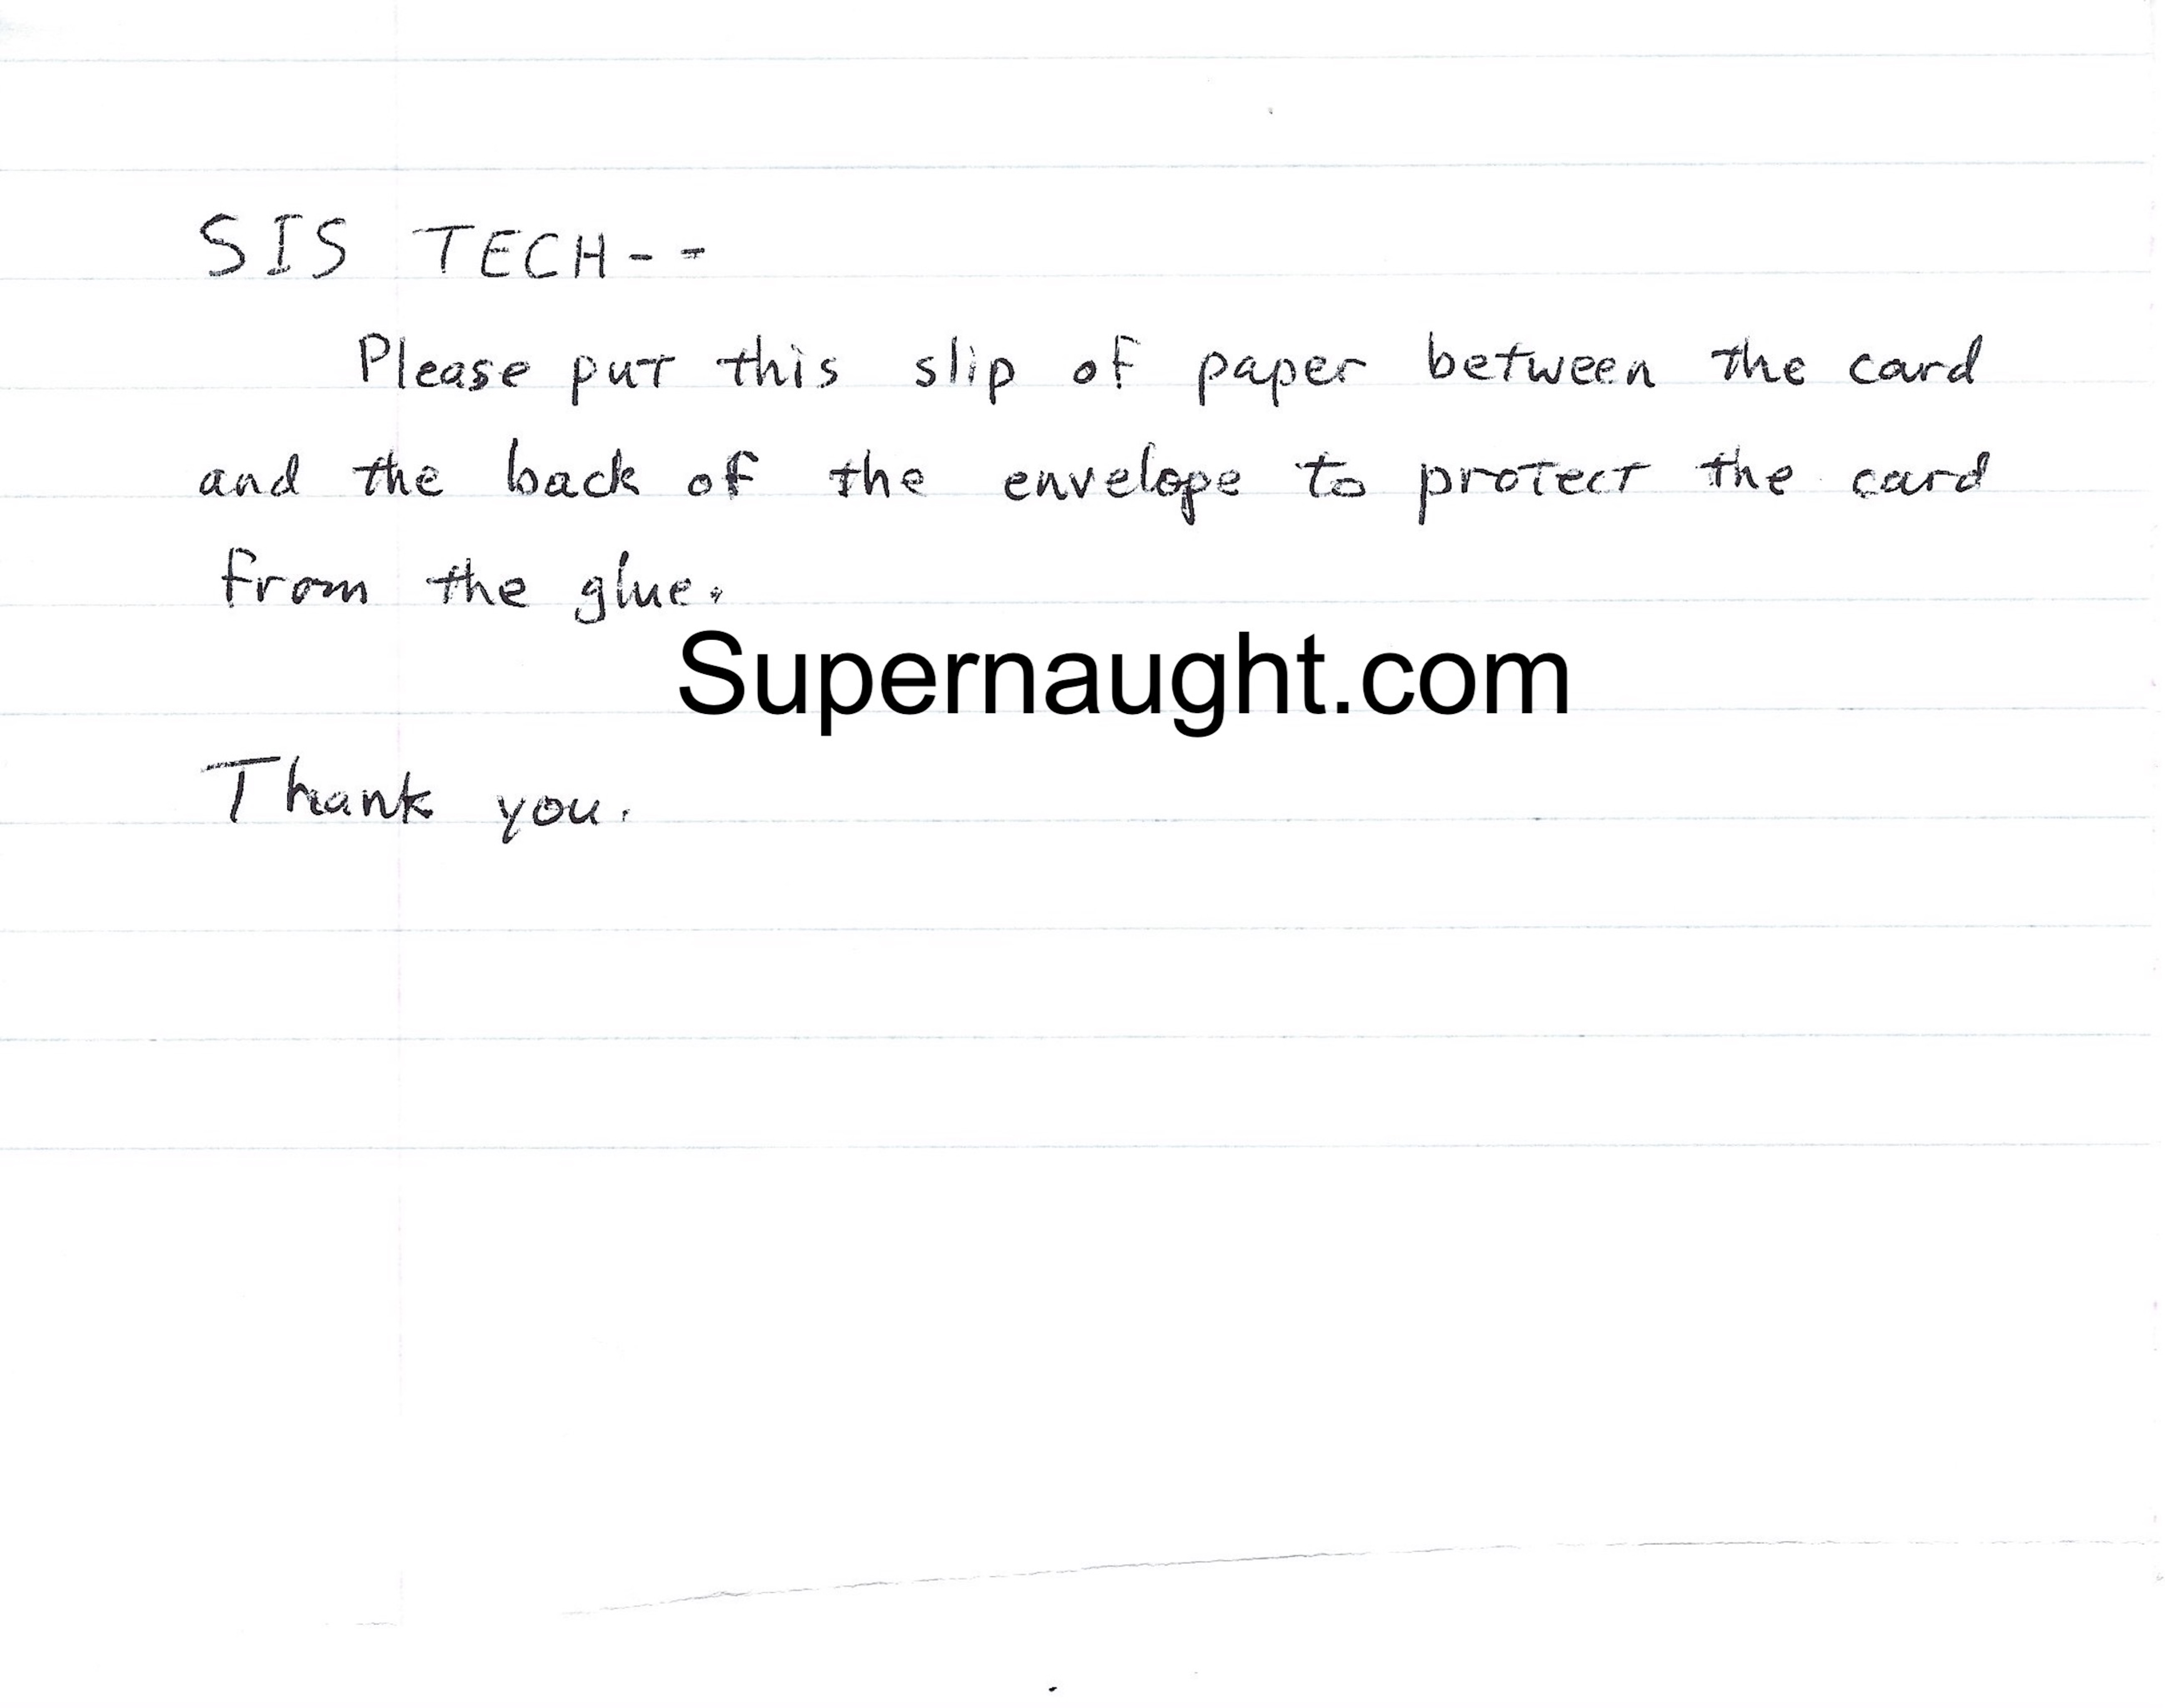 SIS TECH--
Please put this slip of paper between the card
and the back of the envelope to protect the card
from the glue.
Supernaught.com
Thank you.